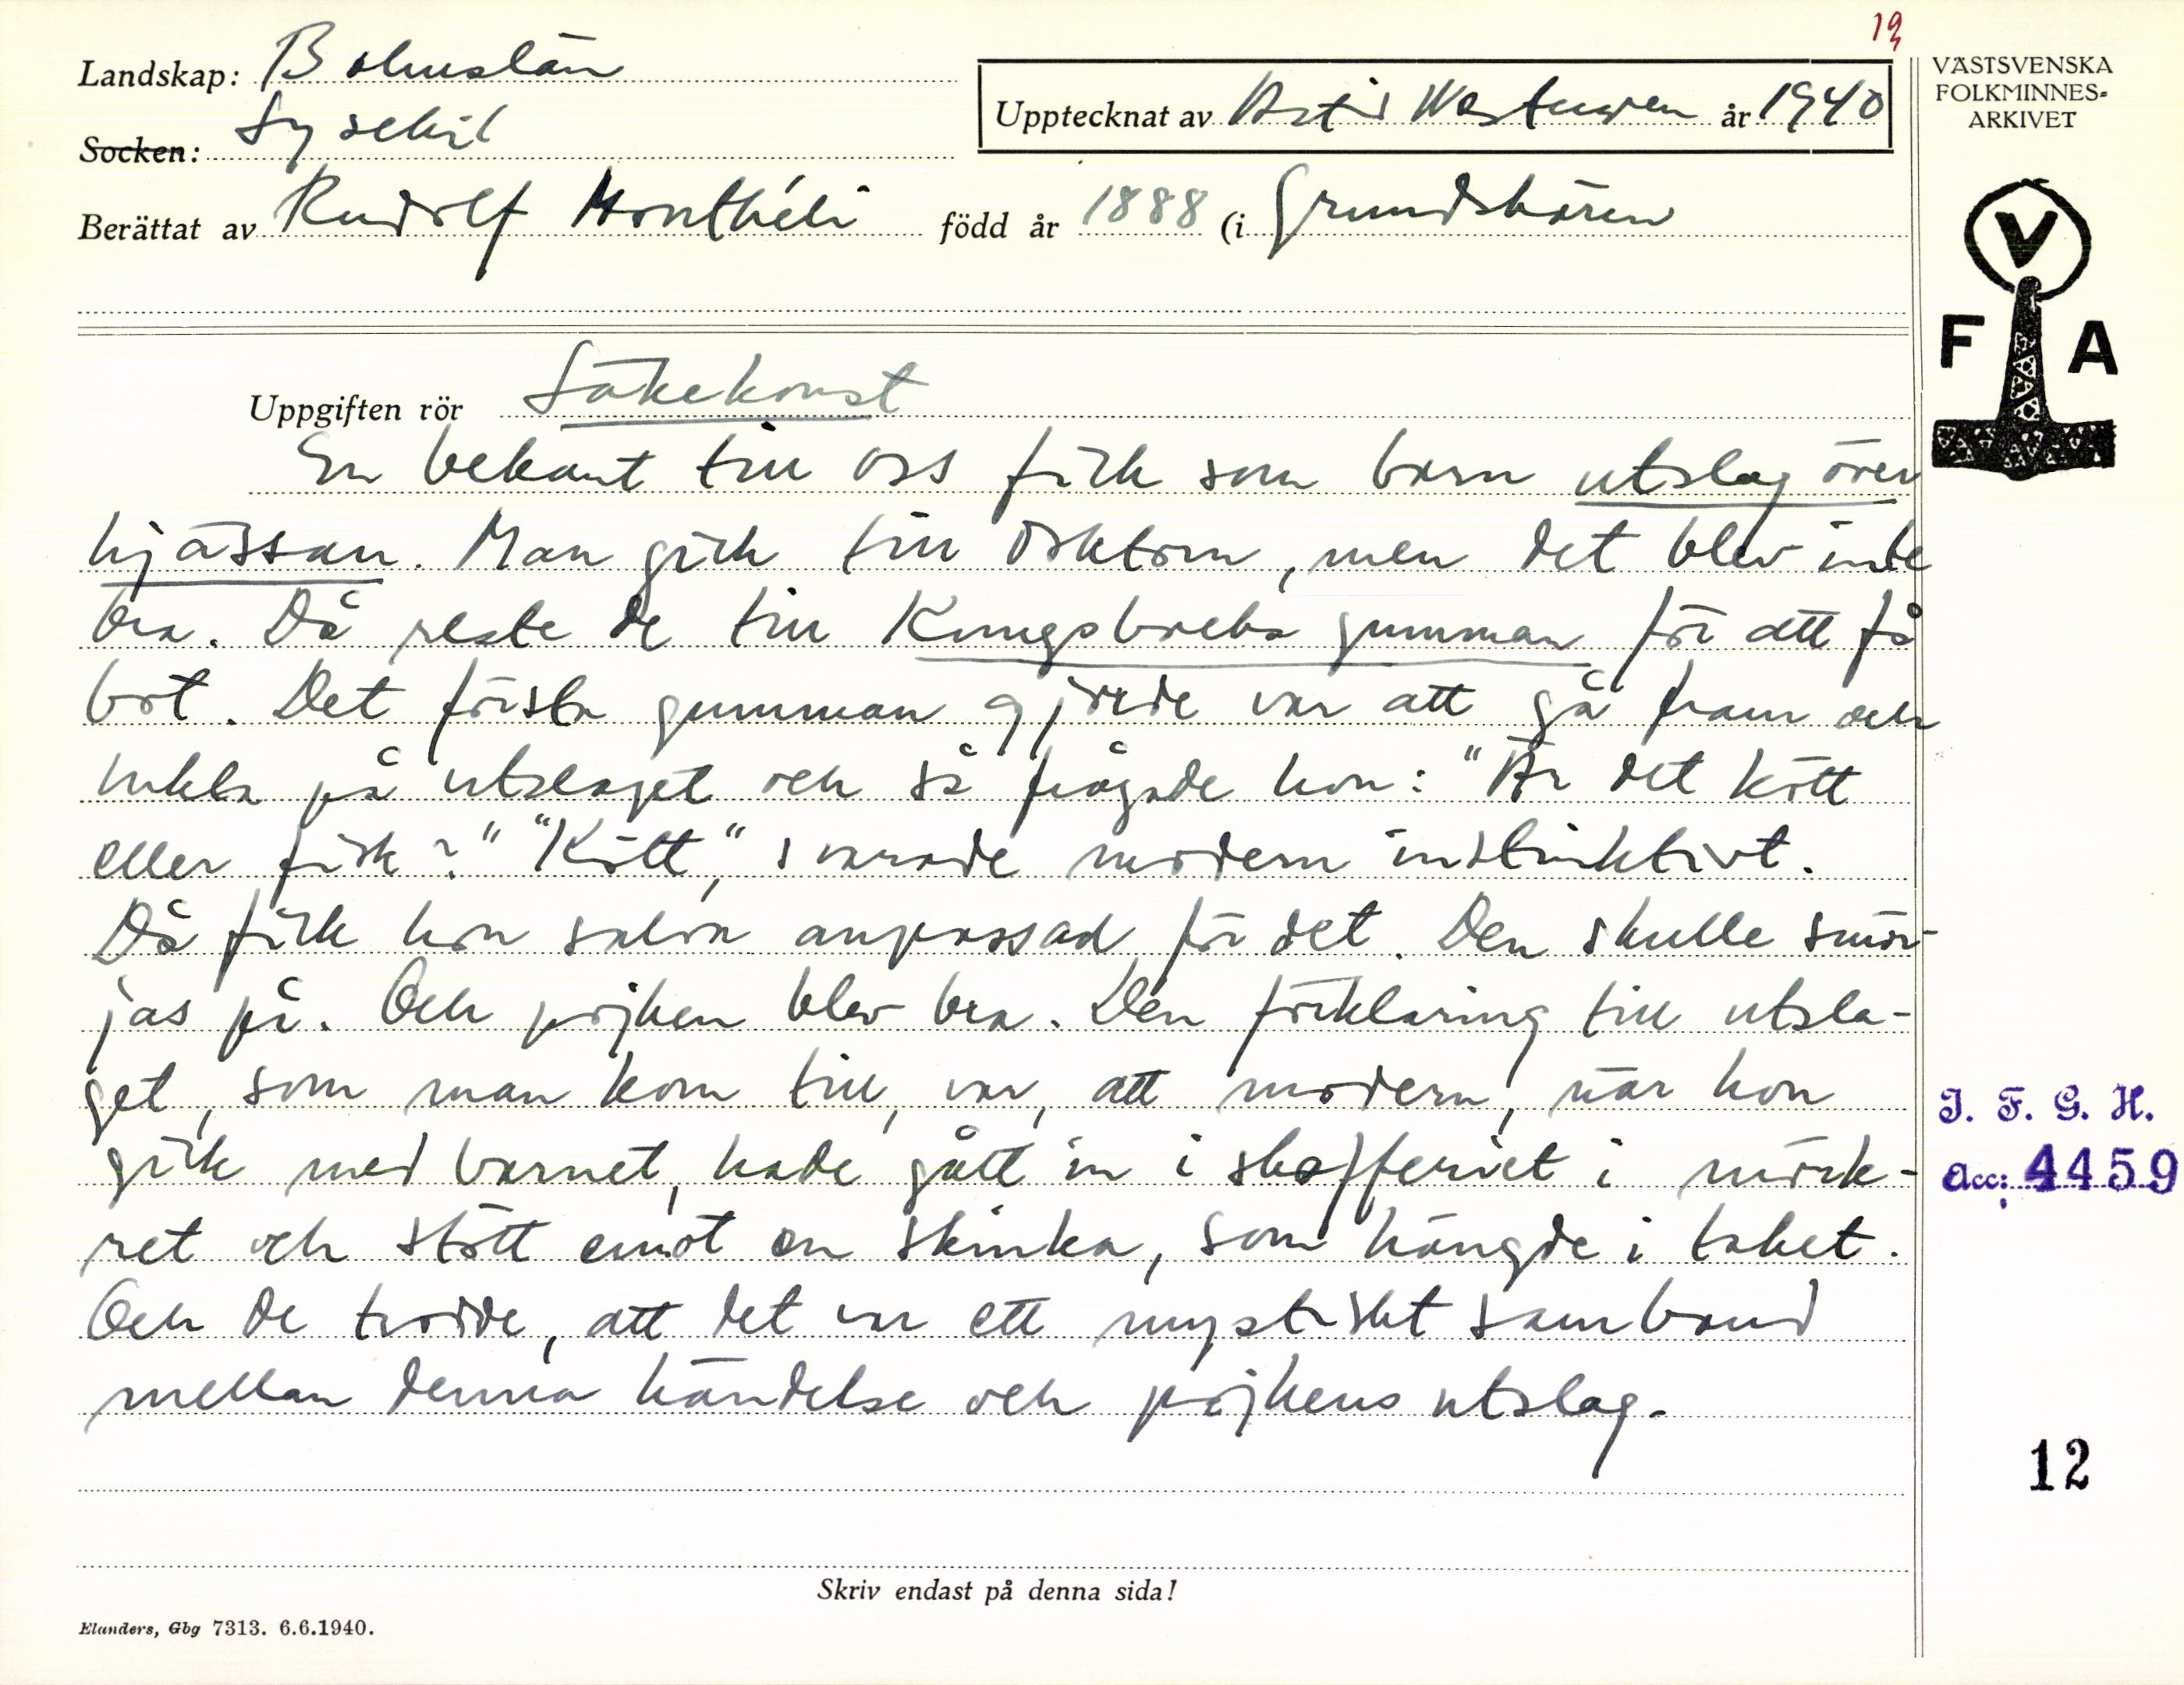 19
Landskap: Bohuslän
Socken: Lysekil
Upptecknat av Astrid Westergren år 1940
Berättat av Rudolf Monthéli född år 1888 (i Grundskären
VÄSTSVENSKA
FOLKMINNES-
ARKIVET
V
F A
Uppgiften rör Läkekonst
En bekant till oss fick som barn utslag över
hjässan. Man gick till doktorn, men det blev inte
bra. Då reste de till Kungsbrobs gumman för att få
bot. Det första gumman gjorde var att gå fram och
lukta på utslaget och så frågade hon: "Är det kött
eller fisk?" "Kött", svarade modern instinktivt.
Då fick hon salva anpassad för det. Den skulle smör-
jas på. Och pojken blev bra. Den förklaring till utsla-
get, som man kom till, var, att modern, när hon
gick med barnet, hade gått in i skafferiet i mörk-
ret och stött emot en skinka, som hängde i taket.
Och de trodde, att det var ett mystiskt samband
mellan denna händelse och pojkens utslag.
I. F. G. H.
Acc: 4459
12
Skriv endast på denna sida!
Elanders, Gbg 7313. 6.6.1940.